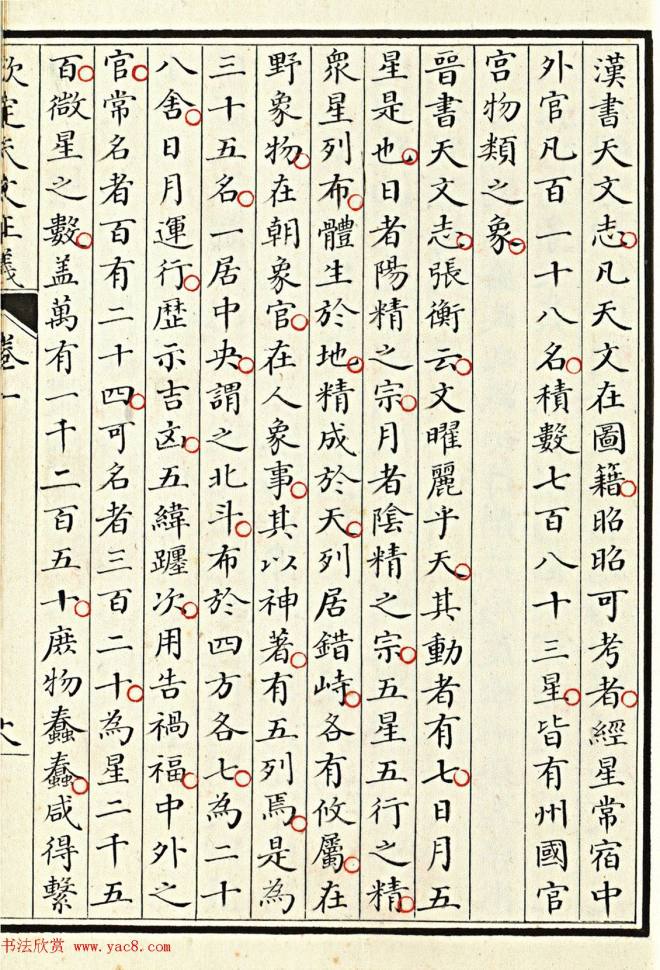 漢書天文志凡天文在圖籍昭昭可考者經星常宿中
外官凡百一十八名積數七百八十三星皆有州國官
宮物類之象
晉書天文志張衡云文曜麗乎天其動者有七日月五
星是也日者陽精之宗月者陰精之宗五星五行之精
衆星列布體生於地精成於天列居錯峙各有攸屬在
野象物在朝象官在人象事其以神著有五列焉是為
三十五名一居中央謂之北斗布於四方各七為二十
八舍日月運行歷示吉凶五緯躔次用告禍福中外之
官常名者百有二十四可名者三百二十為星二千五
百微星之數蓋萬有一千二百五十庶物蠢蠢咸得繫
欽定天文正義
卷一
十八
书法欣赏 www.yac8.com